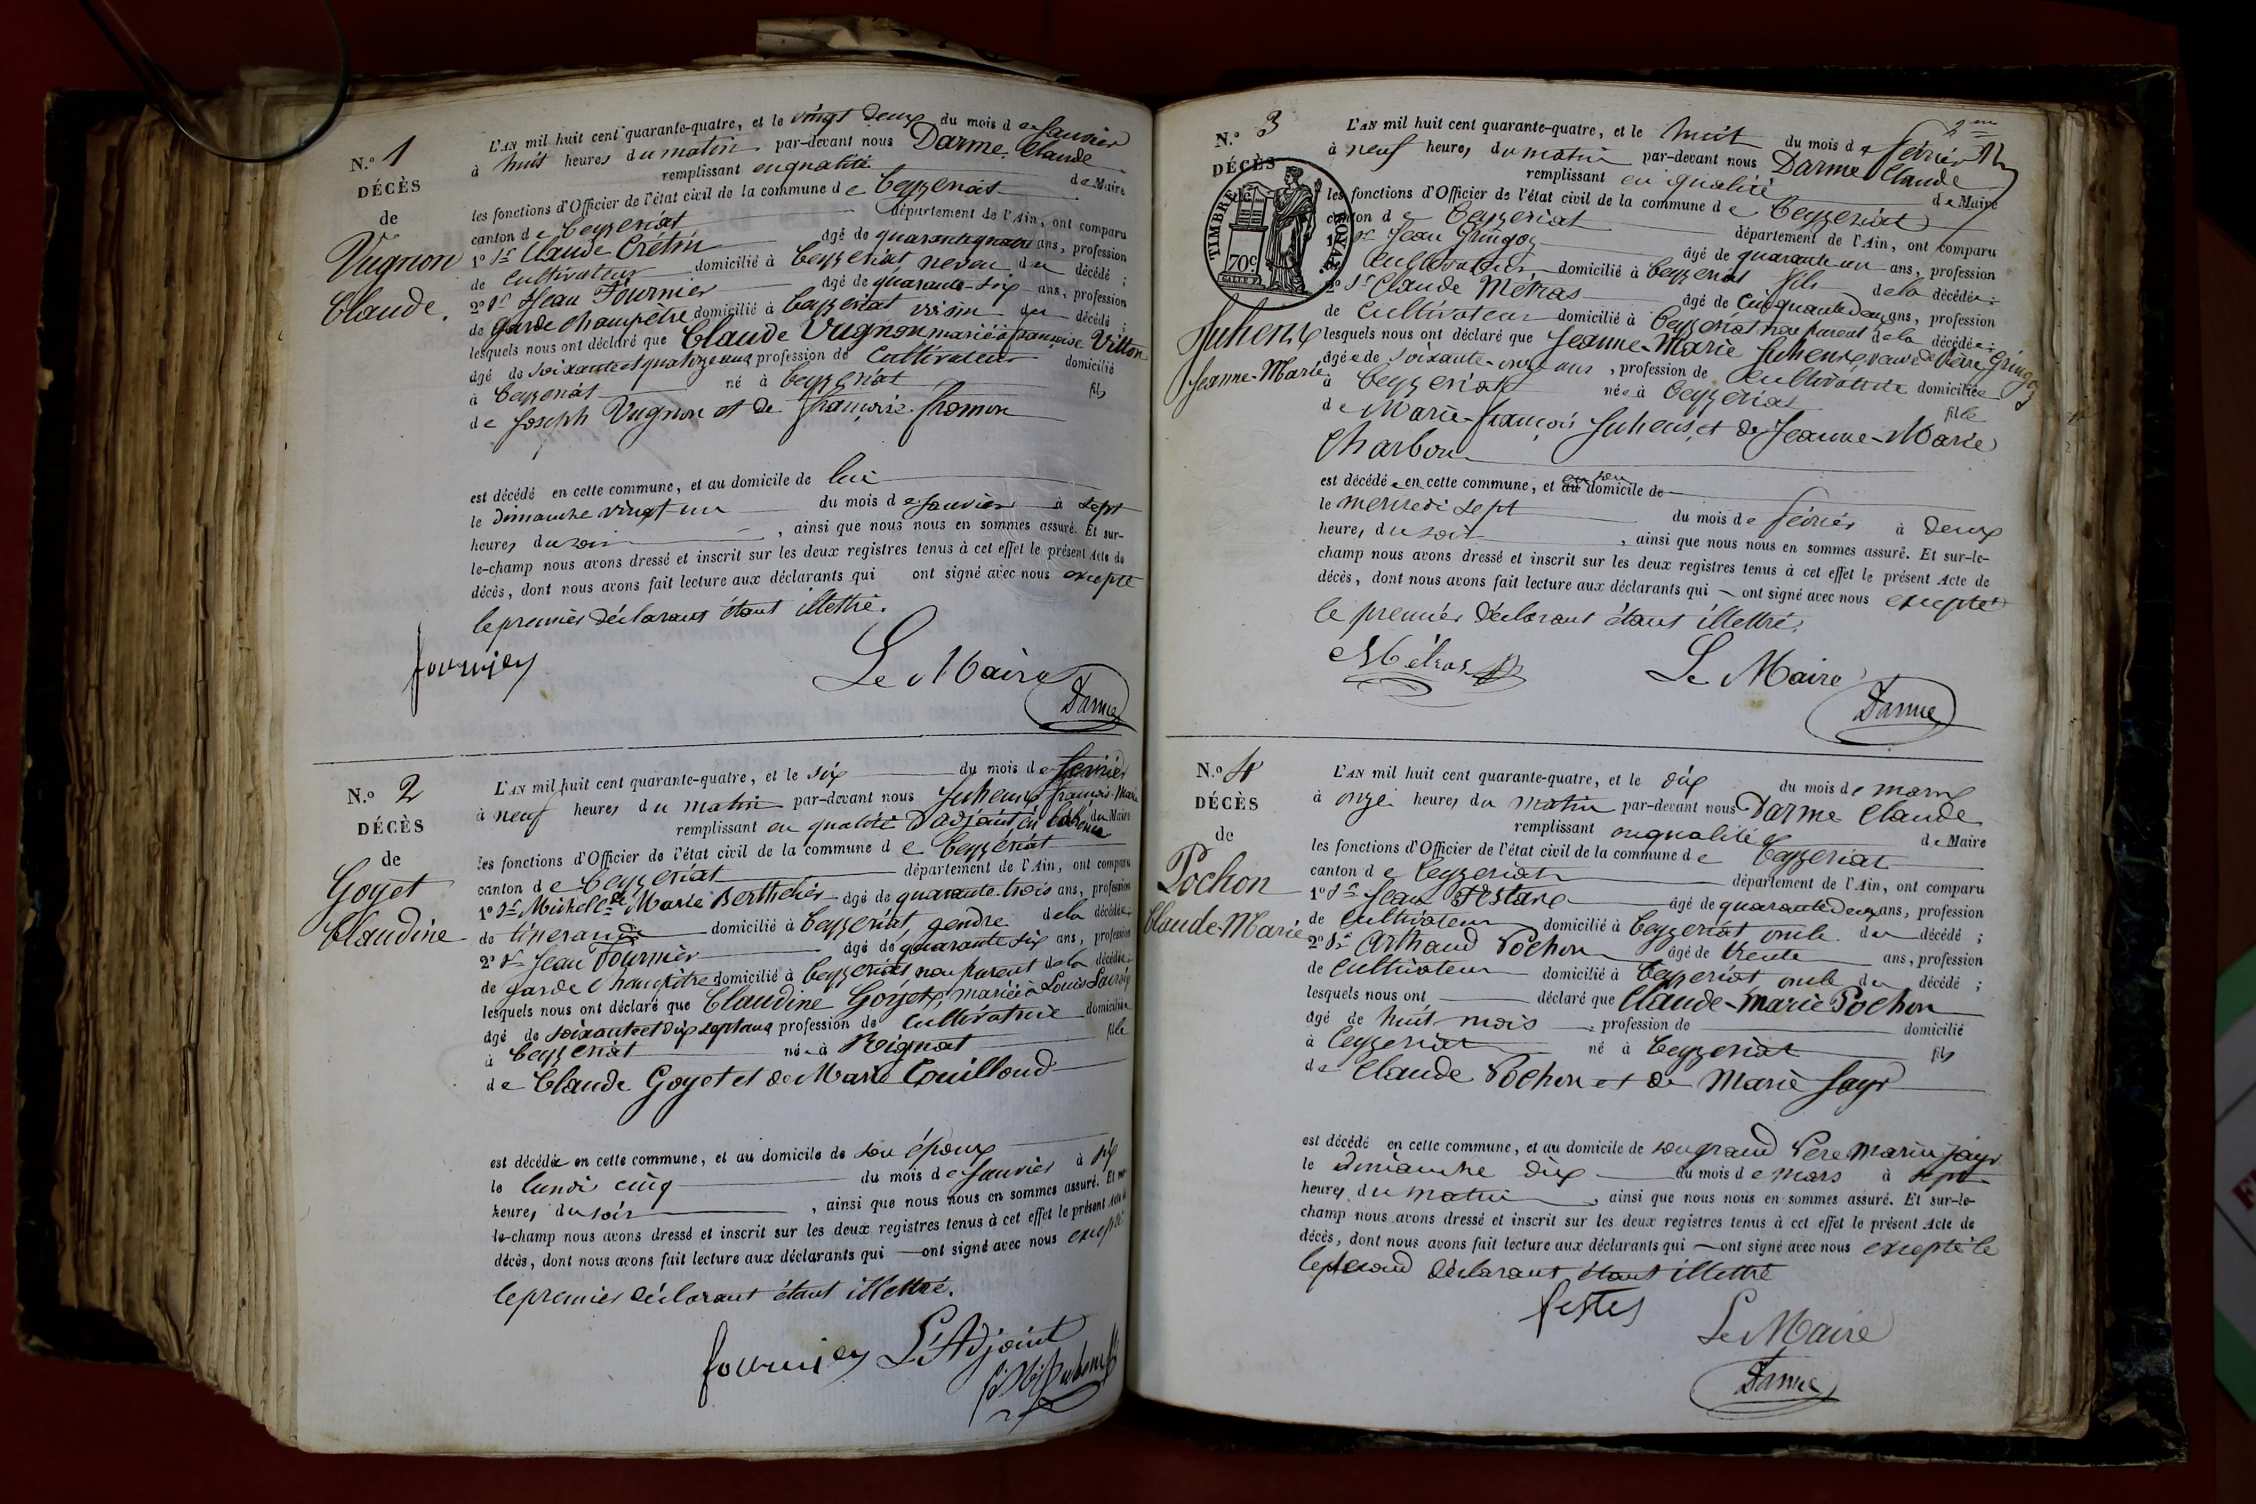 N.º 1
DÉCÈS
de
Vugnon
Claude.
L'AN mil huit cent quarante-quatre, et le vingt deux du mois de Janvier
à huit heures du matin par-devant nous Darme Claude
remplissant en qualité de Maire
les fonctions d'Officier de l'état civil de la commune de Ceyzeriat
canton de Ceyzeriat département de l'Ain, ont comparu
1º Sr Claude Crétin âgé de quarante quatre ans, profession
de Cultivateur domicilié à Ceyzeriat neveu du décédé ;
2º Sr Jean Fournier âgé de quarante-six ans, profession
de garde Champêtre domicilié à Ceyzeriat voisin du décédé ;
lesquels nous ont déclaré que Claude Vugnon marié à françoise Vitton
âgé de soixante et quatorze ans profession de Cultivateur domicilié
à Ceyzeriat né à Ceyzeriat fils
de Joseph Vugnon et de françoise fromon
est décédé en cette commune, et au domicile de lui
le dimanche vingt un du mois de Janvier à sept
heures du soir , ainsi que nous nous en sommes assuré. Et sur-
le-champ nous avons dressé et inscrit sur les deux registres tenus à cet effet le présent Acte de
décès, dont nous avons fait lecture aux déclarants qui ont signé avec nous excepté
le premier déclarant étant illettré.
fournier
Le Maire
Darme
N.º 2
DÉCÈS
de
Goyet
Claudine
L'AN mil huit cent quarante-quatre, et le six du mois de février
à neuf heures du matin par-devant nous Juhens françois-Marie
remplissant en qualité d'adjoint en l'absence du Maire
les fonctions d'Officier de l'état civil de la commune de Ceyzeriat
canton de Ceyzeriat département de l'Ain, ont comparu
1º Sr Michel Marie Berthelier âgé de quarante-trois ans, profession
de tisserand domicilié à Ceyzeriat, gendre de la décédée
2º Sr Jean Fournier âgé de quarante six ans, profession
de garde Champêtre domicilié à Ceyzeriat non parent de la décédée
lesquels nous ont déclaré que Claudine Goyet, mariée à Louis
âgé de soixante et dix sept ans profession de Cultivatrice domiciliée
à Ceyzeriat née à Rignat fille
de Claude Goyet et de Marie Couilloud
est décédée en cette commune, et au domicile de son époux
le lundi cinq du mois de Janvier à six
heures du soir , ainsi que nous nous en sommes assuré. Et sur-
le-champ nous avons dressé et inscrit sur les deux registres tenus à cet effet le présent Acte de
décès, dont nous avons fait lecture aux déclarants qui ont signé avec nous excepté
le premier déclarant étant illettré.
fournier L'Adjoint
N.º 3
DÉCÈS
TIMBRE ROYAL
70c
Juhens
Jeanne-Marie
L'AN mil huit cent quarante-quatre, et le huit du mois de février
à neuf heures du matin par-devant nous Darme Claude
remplissant en qualité de Maire
les fonctions d'Officier de l'état civil de la commune de Ceyzeriat
canton de Ceyzeriat département de l'Ain, ont comparu
1º Sr Jean Gringoz âgé de quarante un ans, profession
Cultivateur domicilié à Ceyzeriat fils de la décédée ;
2º Sr Claude Métras âgé de Cinquante deux ans, profession
de Cultivateur domicilié à Ceyzeriat non parent de la décédée ;
lesquels nous ont déclaré que Jeanne-Marie Juhens, veuve de Gringoz
âgée de soixante-onze ans , profession de Cultivatrice domiciliée
à Ceyzeriat née à Ceyzeriat fille
de Marie-françois Juhens, et de Jeanne-Marie
Charbon
est décédée en cette commune, et au domicile de
le mercredi sept du mois de février à deux
heures du soir , ainsi que nous nous en sommes assuré. Et sur-le-
champ nous avons dressé et inscrit sur les deux registres tenus à cet effet le présent Acte de
décès, dont nous avons fait lecture aux déclarants qui ont signé avec nous excepté
le premier déclarant étant illettré.
Métras
Le Maire
Darme
N.º 4
DÉCÈS
de
Pochon
Claude-Marie
L'AN mil huit cent quarante-quatre, et le dix du mois de mars
à onze heures du matin par-devant nous Darme Claude
remplissant en qualité de Maire
les fonctions d'Officier de l'état civil de la commune de Ceyzeriat
canton de Ceyzeriat département de l'Ain, ont comparu
1º Sr Jean âgé de quarante deux ans, profession
de Cultivateur domicilié à Ceyzeriat oncle du décédé ;
2º Sr Arthaud Pochon âgé de trente ans, profession
de Cultivateur domicilié à Ceyzeriat, oncle du décédé ;
lesquels nous ont déclaré que Claude-Marie Pochon
âgé de huit mois , profession de domicilié
à Ceyzeriat né à Ceyzeriat fils
de Claude Pochon et de Marie Jayr
est décédé en cette commune, et au domicile de son grand Père Marin Jayr
le dimanche dix du mois de mars à sept
heures du matin , ainsi que nous nous en sommes assuré. Et sur-le-
champ nous avons dressé et inscrit sur les deux registres tenus à cet effet le présent Acte de
décès, dont nous avons fait lecture aux déclarants qui ont signé avec nous excepté le
le second déclarant étant illettré
Le Maire
Darme